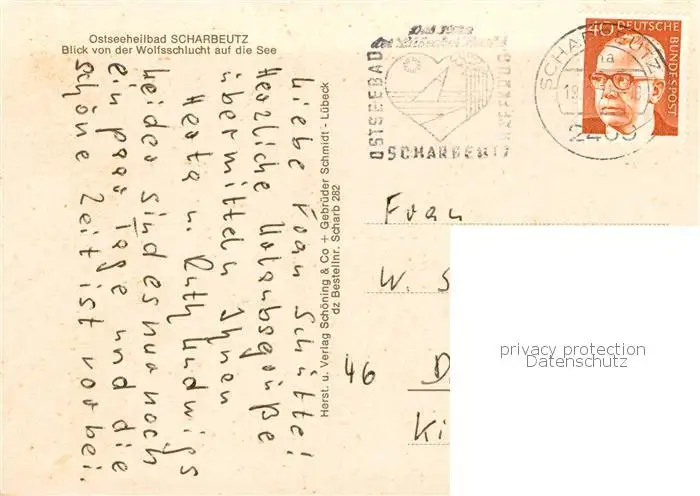 Ostseeheilbad SCHARBEUTZ
Blick von der Wolfsschlucht auf die See
Liebe Frau Schütte!
Herzliche Urlaubsgrüße
übermitteln Ihnen
Herta u. Ruth Ludwigs
Leider sind es nur noch
ein paar Tage und die
schöne Zeit ist vorbei.
Herst. u. Verlag Schöning & Co + Gebrüder Schmidt - Lübeck
dz Bestellnr. Scharb 282
OSTSEEBAD
SCHARBEUTZ
HAFFKRUG
SCHARBEUTZ
na
19
2409
40 DEUTSCHE
BUNDESPOST
Frau
W. S
46 D
Ki
privacy protection
Datenschutz